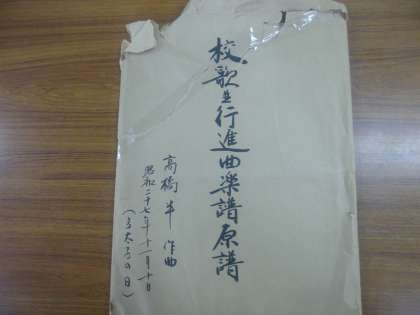 校歌並行進曲楽譜原譜
高橋半作曲
昭和二十七年十一月十日
(立太子の日)